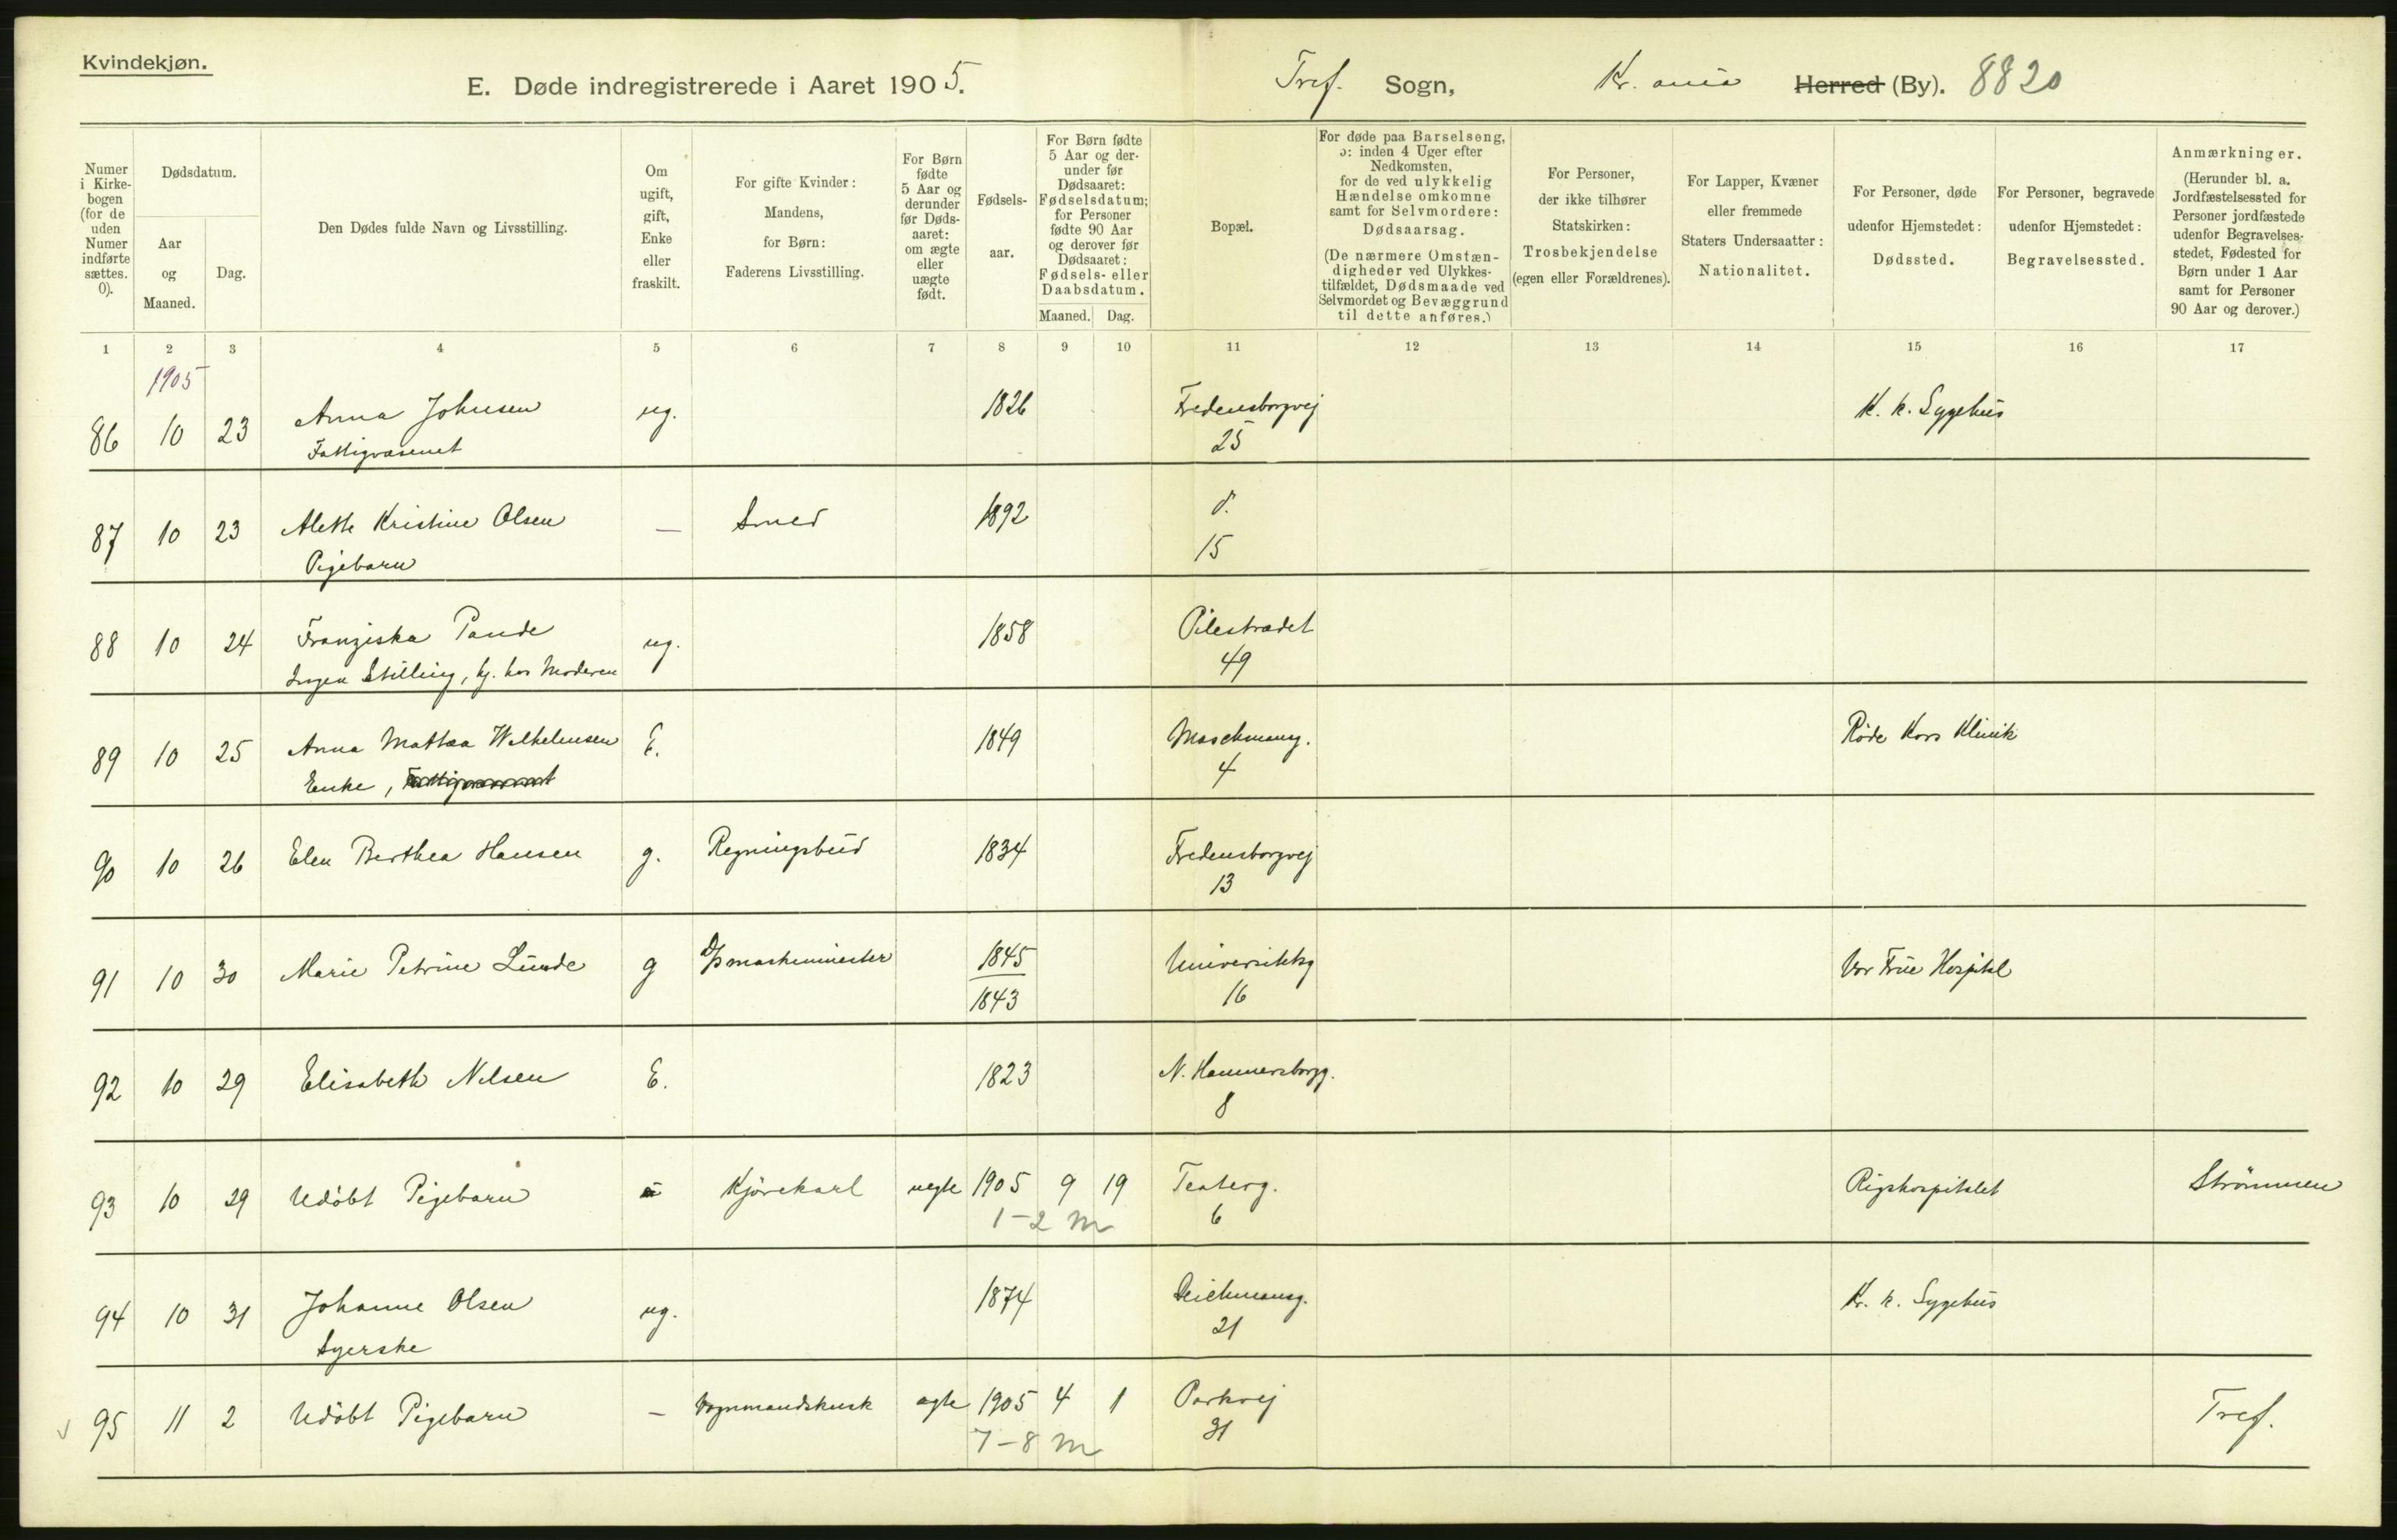 Kvindekjøn.
E. Døde indregistrerede i Aaret 1905.
Tref. Sogn, Kr. ania Herred (By). 8820
Numer i Kirke-bogen (for de uden Numer indførte sættes. 0).
Dødsdatum.
Aar og Maaned.
Dag.
Den Dødes fulde Navn og Livsstilling.
Om ugift, gift, Enke eller fraskilt.
For gifte Kvinder: Mandens, for Børn: Faderens Livsstilling.
For Børn fødte 5 Aar og derunder før Døds-aaret: om ægte eller uægte født.
Fødsels-aar.
For Børn fødte 5 Aar og der-under før Dødsaaret: Fødselsdatum; for Personer fødte 90 Aar og derover før Dødsaaret: Fødsels- eller Daabsdatum.
Maaned. Dag.
Bopæl.
For døde paa Barselseng, ɔ: inden 4 Uger efter Nedkomsten, for de ved ulykkelig Hændelse omkomne samt for Selvmordere: Dødsaarsag.
(De nærmere Omstæn-digheder ved Ulykkes-tilfældet, Dødsmaade ved Selvmordet og Bevæggrund til dette anføres.)
For Personer, der ikke tilhører Statskirken: Trosbekjendelse (egen eller Forældrenes).
For Lapper, Kvæner eller fremmede Staters Undersaatter: Nationalitet.
For Personer, døde udenfor Hjemstedet: Dødssted.
For Personer, begravede udenfor Hjemstedet: Begravelsessted.
Anmærkninger.
(Herunder bl. a. Jordfæstelsessted for Personer jordfæstede udenfor Begravelses-stedet, Fødested for Børn under 1 Aar samt for Personer 90 Aar og derover.)
1 2 3 4 5 6 7 8 9 10 11 12 13 14 15 16 17
1905
86 10 23 Anna Johnsen ug. 1826 Fredensborgvej K. k. Sygehus
Fattigvæsenet 25
87 10 23 Alette Kristine Olsen — Smed 1892 d.
Pigebarn 15
88 10 24 Franziska Pande ug. 1858 Pilestrædet
Ingen Stilling, hj. hos Moderen 49
89 10 25 Anna Mattea Wilhelmsen E. 1849 Maschmansg. Røde Kors Klinik
Enke, Fattigvæsenet 4
90 10 26 Elen Berthea Hansen g. Regningsbud 1834 Fredensborgvej
13
91 10 30 Marie Petrine Lunde g D/Smaskinmester 1845 Universitetsg Vor Frue Hospital
1843 16
92 10 29 Elisabeth Nilsen E. 1823 N. Hammersborgg.
8
93 10 29 Udøbt Pigebarn Kjørekarl uegte 1905 9 19 Teaterg. Rigshospitalet Strømmen
1-2 m 6
94 10 31 Johanne Olsen ug. 1874 Deichmansg. Kr. k. Sygehus
Syerske 21
95 11 2 Udøbt Pigebarn — Vognmandskusk ægte 1905 4 1 Parkvej Tref.
7-8 m 31